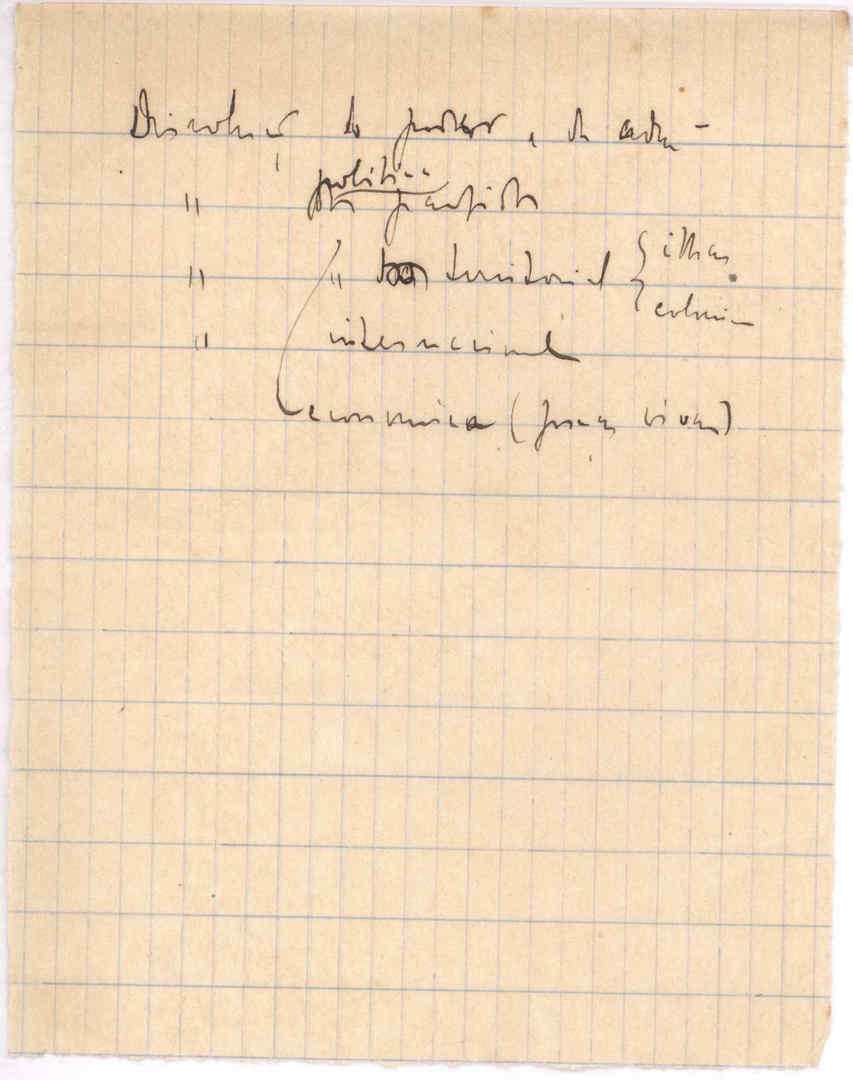 Dissolução do poder, da adm–
politica
"
" " territorial { ilhas
colonia
" internacional
economica (forças vivas)